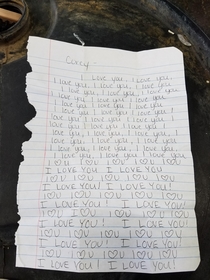 Corey
I love you, I love you,
I love you, I love you, I love you,
I love you, I love you, I love you, I
love you, I love you, I love you, I
love you, I love you, I love you, I
love you, I love you, I love you, I
love you, I love you, I love you, I
love you, I love you, I love you, I
love you, I love you, I love you, I
love you, I love you, I love you, I
love you, I love you, I love you!
I ♡ U I ♡ U I ♡ U I ♡ U I ♡ U
I LOVE YOU I LOVE YOU
I ♡ U I ♡ U I ♡ U I ♡ U I ♡ U
I LOVE YOU! I LOVE YOU!
I ♡ U I ♡ U I ♡ U I ♡ U I ♡ U
I LOVE YOU! I LOVE YOU!
I ♡ U I ♡ U I ♡ U I ♡ U I ♡ U
I LOVE YOU! I LOVE YOU!
I ♡ U I ♡ U I ♡ U I ♡ U I ♡ U
I LOVE YOU! I LOVE YOU!
I ♡ U I ♡ U I ♡ U I ♡ U I ♡ U
I LOVE YOU! I LOVE YOU!